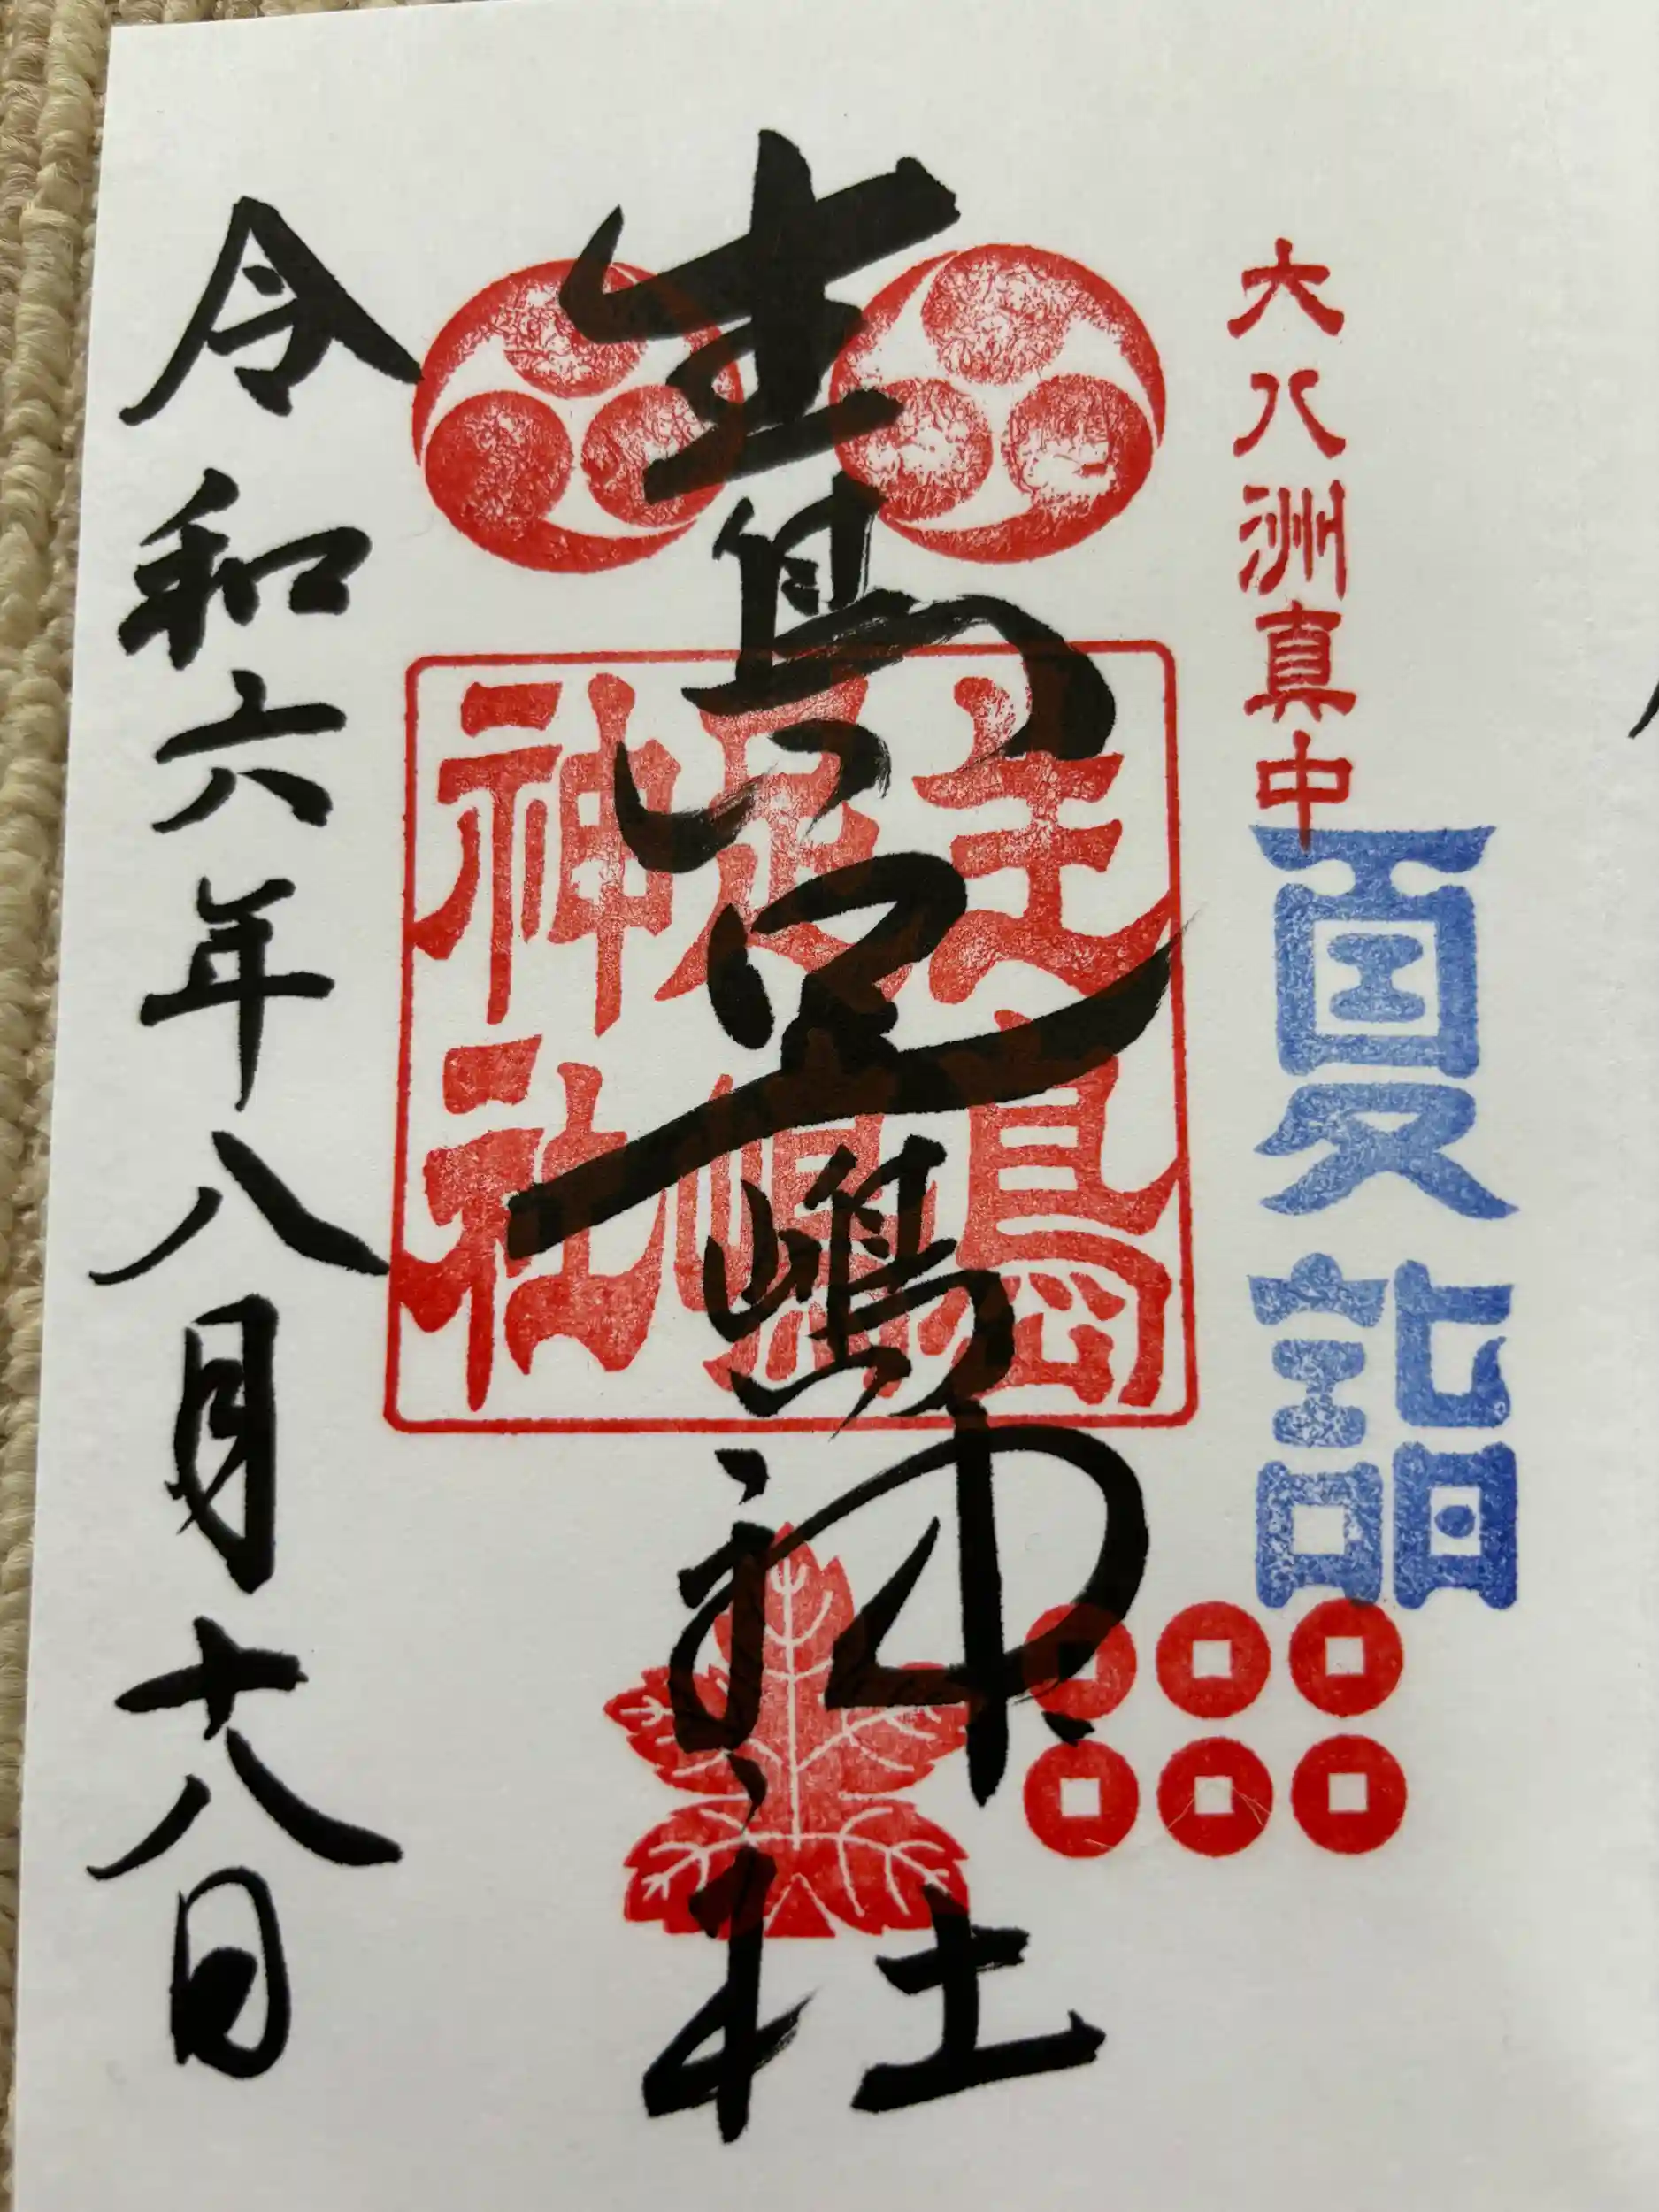 大八洲真中
夏詣
生島足嶋神社
生島
足嶋
神社
令和六年八月十八日